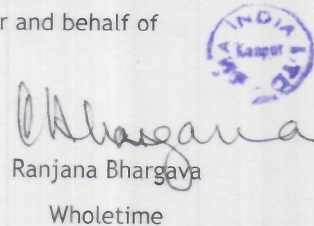 r and behalf of
INDIA
Kanpur
LTD
Ranjana Bhargava
Wholetime